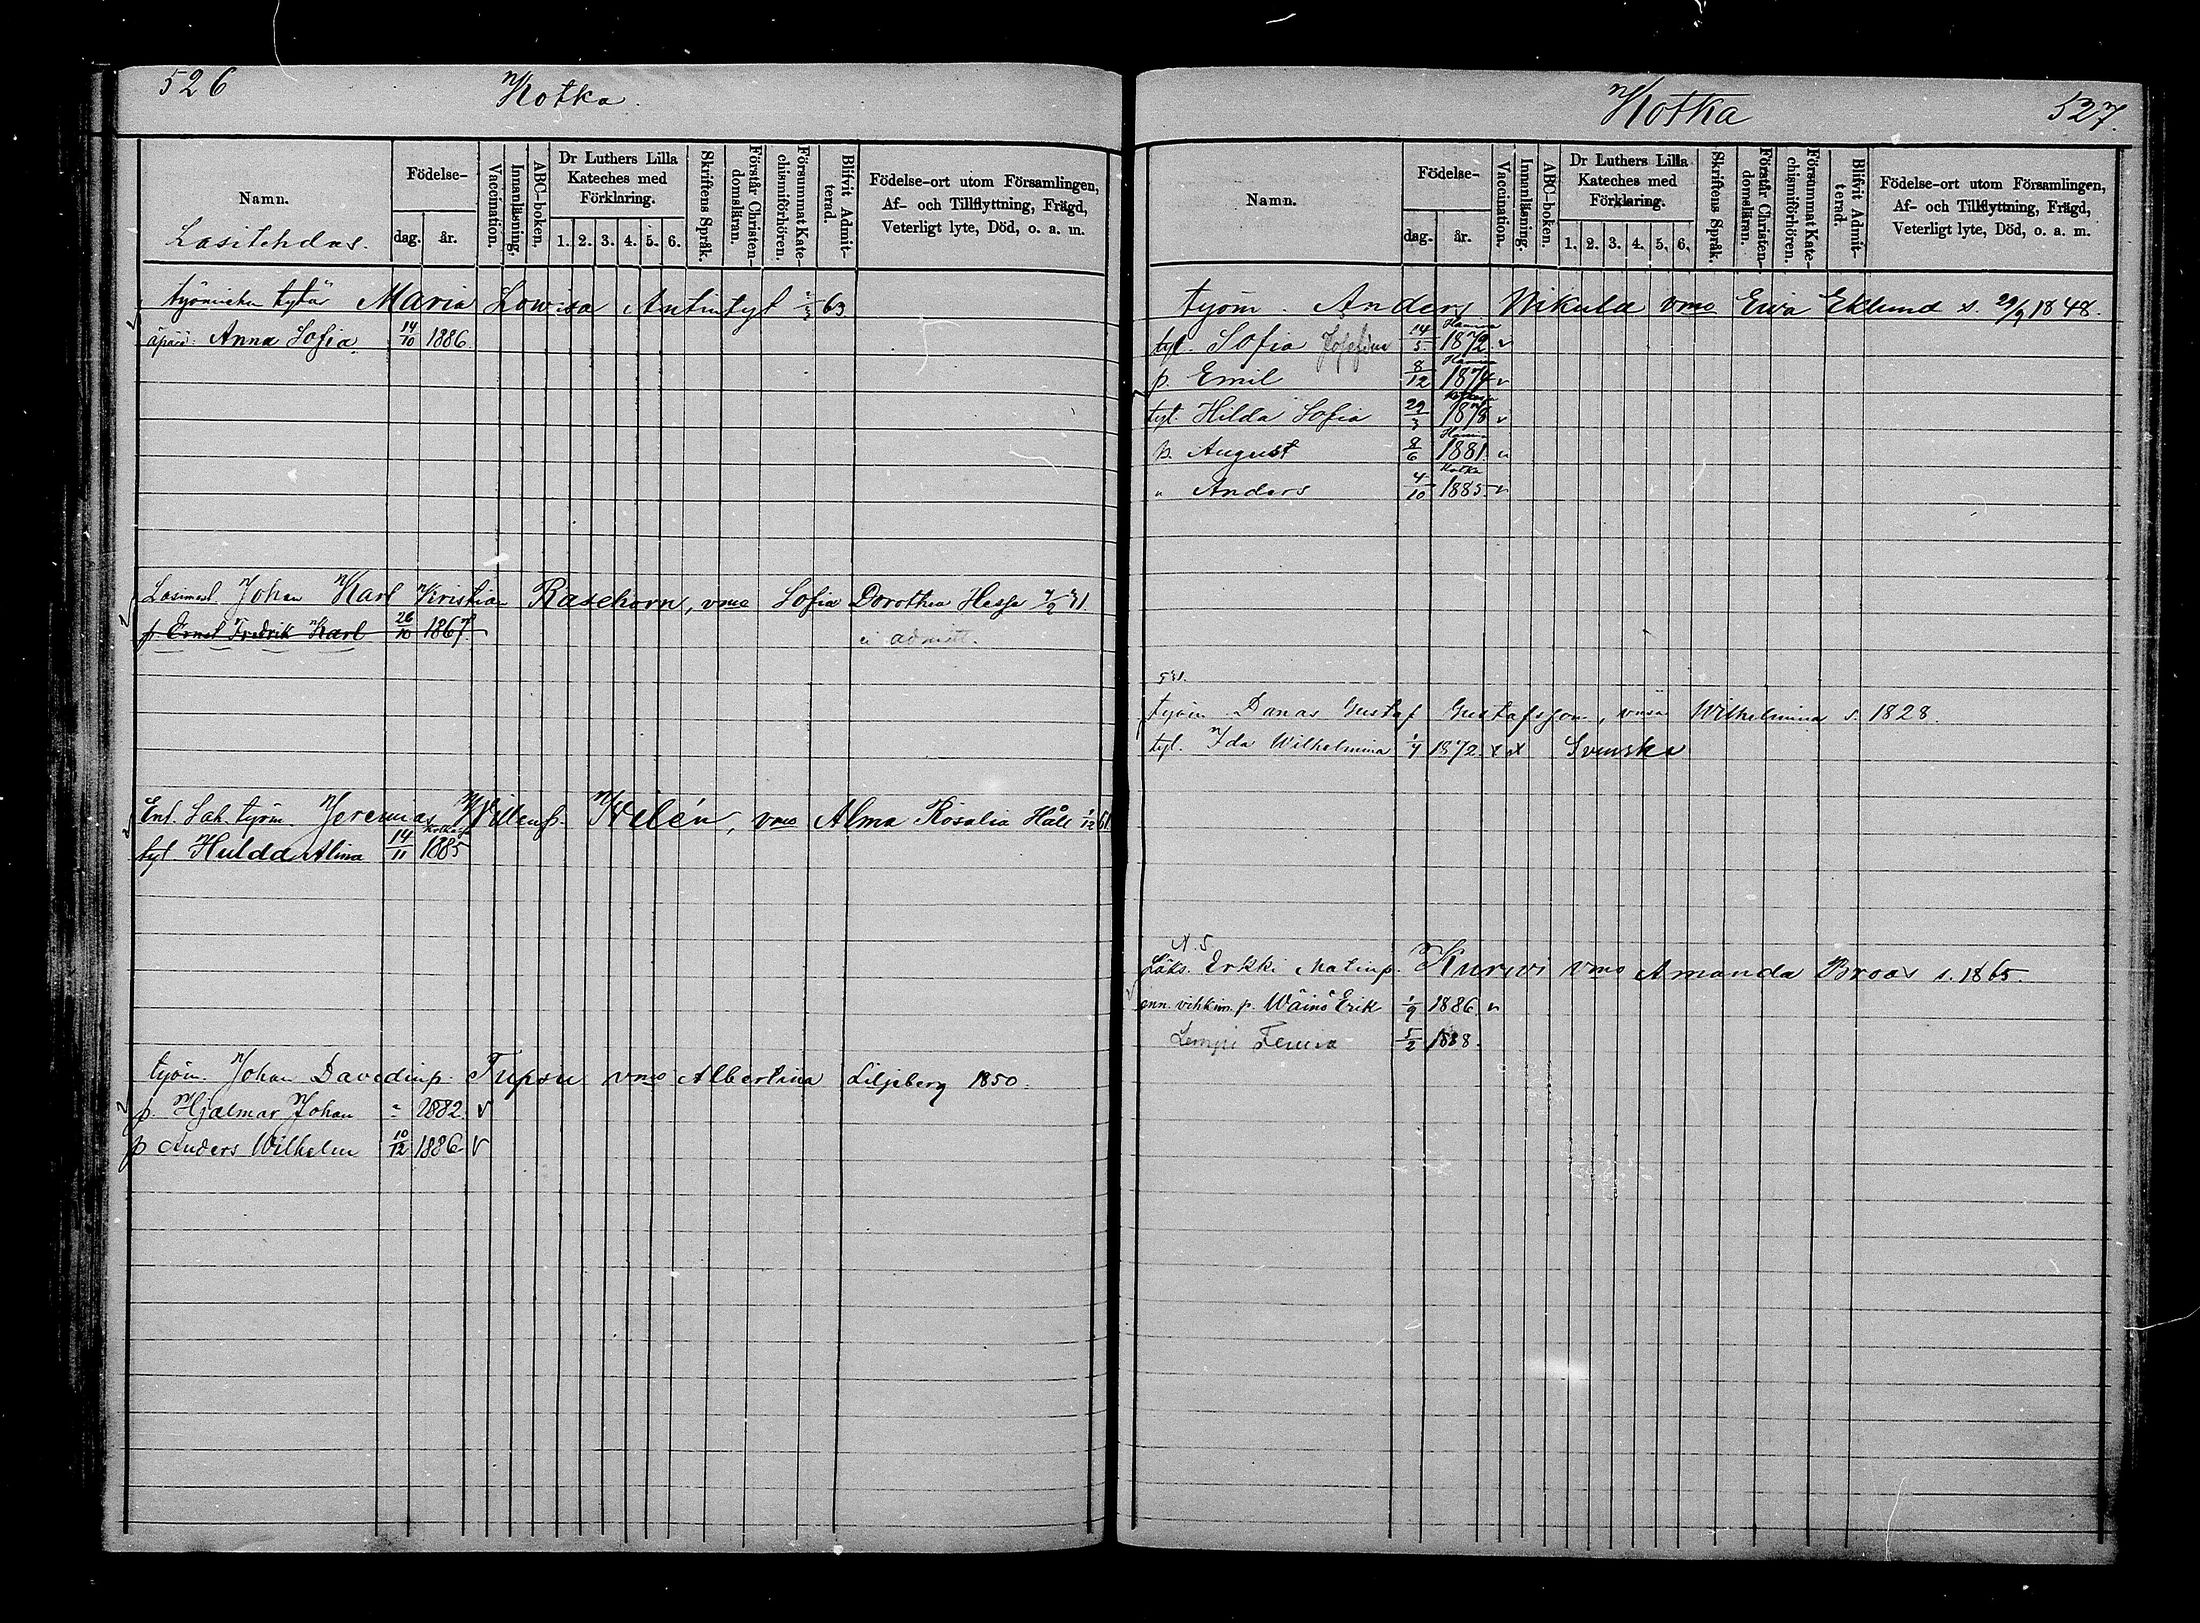 526
Kotka.
Namn.
Lasitehdas.
Födelse-
dag.
år.
Vaccination.
Innanläsning.
ABC-boken.
Dr Luthers Lilla
Kateches med
Förklaring.
1. 2. 3. 4. 5. 6.
Skriftens Språk.
Förstår Christen-
domsläran.
Försummat Kate-
chismiförhören.
Blifvit Admit-
terad.
Födelse-ort utom Församlingen,
Af- och Tillflyttning, Frägd,
Veterligt lyte, Död, o. a. m.
työmiehen tytär Maria Lowisa Antintyt 63
äpärä Anna Sofia 14/10 1886
Lasimest. Johan Karl Kristian Rasehorn, vmo Sofia Dorothea Hesse
p. Ernst Fredrik Karl 26/10 1867 ei admitt.
Ent. Sah. työm Jeremias Willenp. Helén, vmo Alma Rosalia Häll 1/12 61
tyt Hulda Alina 14/11 1885
työm. Johan Davidinp. Tupsu vmo Albertina Liljeberg 1850.
p. Hjalmar Johan " 1882 v
p Anders Wilhelm 10/12 1886 v
Kotka
527.
Namn.
Födelse-
dag.
år.
Vaccination.
Innanläsning.
ABC-boken.
Dr Luthers Lilla
Kateches med
Förklaring.
1. 2. 3. 4. 5. 6.
Skriftens Språk.
Förstår Christen-
domsläran.
Försummat Kate-
chismiförhören.
Blifvit Admit-
terad.
Födelse-ort utom Församlingen,
Af- och Tillflyttning, Frägd,
Veterligt lyte, Död, o. a. m.
työm. Anders Nikula vmo Ewa Eklund s. 29/9 1848.
tyt. Sofia Josefina 14/5 Hamina 1872 v
p. Emil 8/12 Hamina 1874 v
tyt. Hilda Sofia 29/3 1878 v
p. August 8/6 Hamina 1881 v
" Anders 4/10 Kotka 1885 v
531.
työm Danas Gustaf Gustafsson, vmsä Wilhelmina s. 1828.
tyt. Ida Wilhelmina 1872 x x Svenska
N. 5
Läks. Erkki Matinp. Kurwi vmo Amanda Broas s. 1865.
enn. vihkim. p. Wäinö Erik 1/9 1886 v
Lempi 5/2 1888.